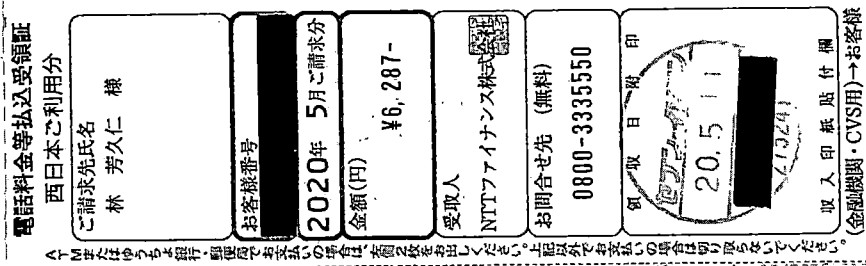 電話料金等払込受領証
西日本ご利用分
ご請求先氏名
林 芳久仁 様
お客様番号
2020年 5月ご請求分
金額(円)
¥6,287-
受取人
NTTファイナンス株式会社
お問合せ先 (無料)
0800-3335550
領収日附印
セブン-イレブン
20.5.11
収入印紙貼付欄
(金融機関・CVS用)→お客様
ATMまたはゆうちょ銀行・郵便局でお支払いの場合は、左側2枚をお出しください。上記以外でお支払いの場合は切り取らないでください。